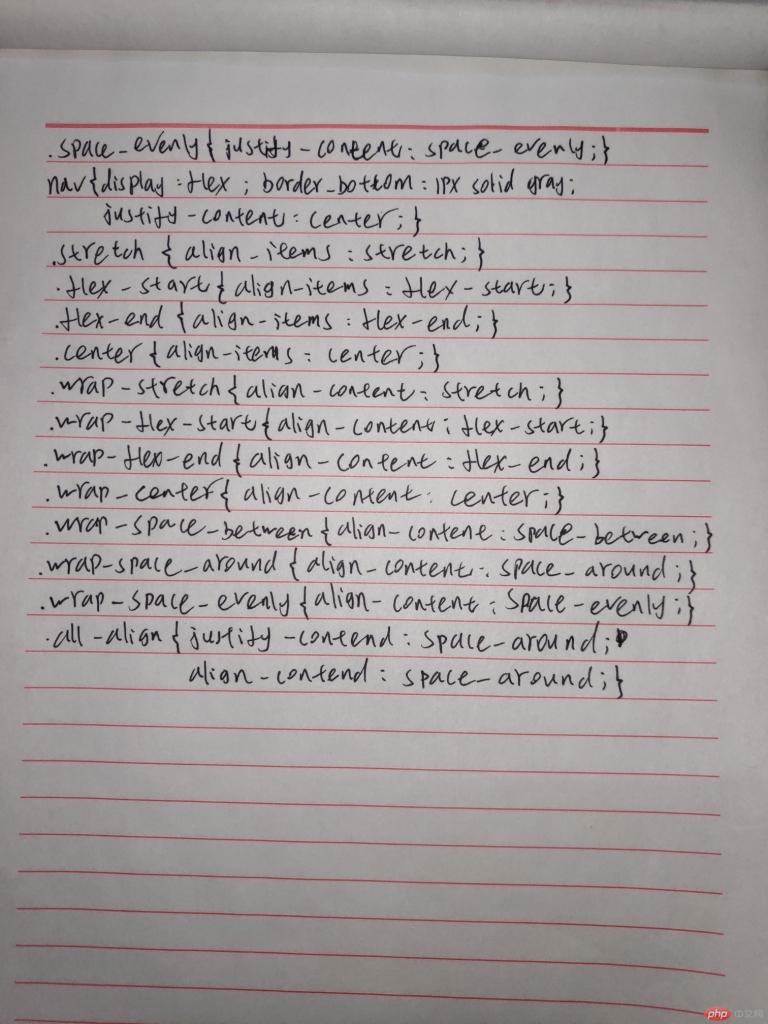 .space-evenly{justify-content: space-evenly;}
nav{display:flex; border-bottom: 1px solid gray;
justify-content: center;}
.stretch {align-items: stretch;}
.flex-start{align-items: flex-start;}
.flex-end {align-items: flex-end;}
.center{align-items: center;}
.wrap-stretch{align-content: stretch;}
.wrap-flex-start{align-content: flex-start;}
.wrap-flex-end {align-content: flex-end;}
.wrap-center{align-content: center;}
.wrap-space-between{align-content: space-between;}
.wrap-space-around {align-content: space-around;}
.wrap-space-evenly{align-content: space-evenly;}
.all-align{justify-contend: space-around;
align-contend: space-around;}
php 中文网